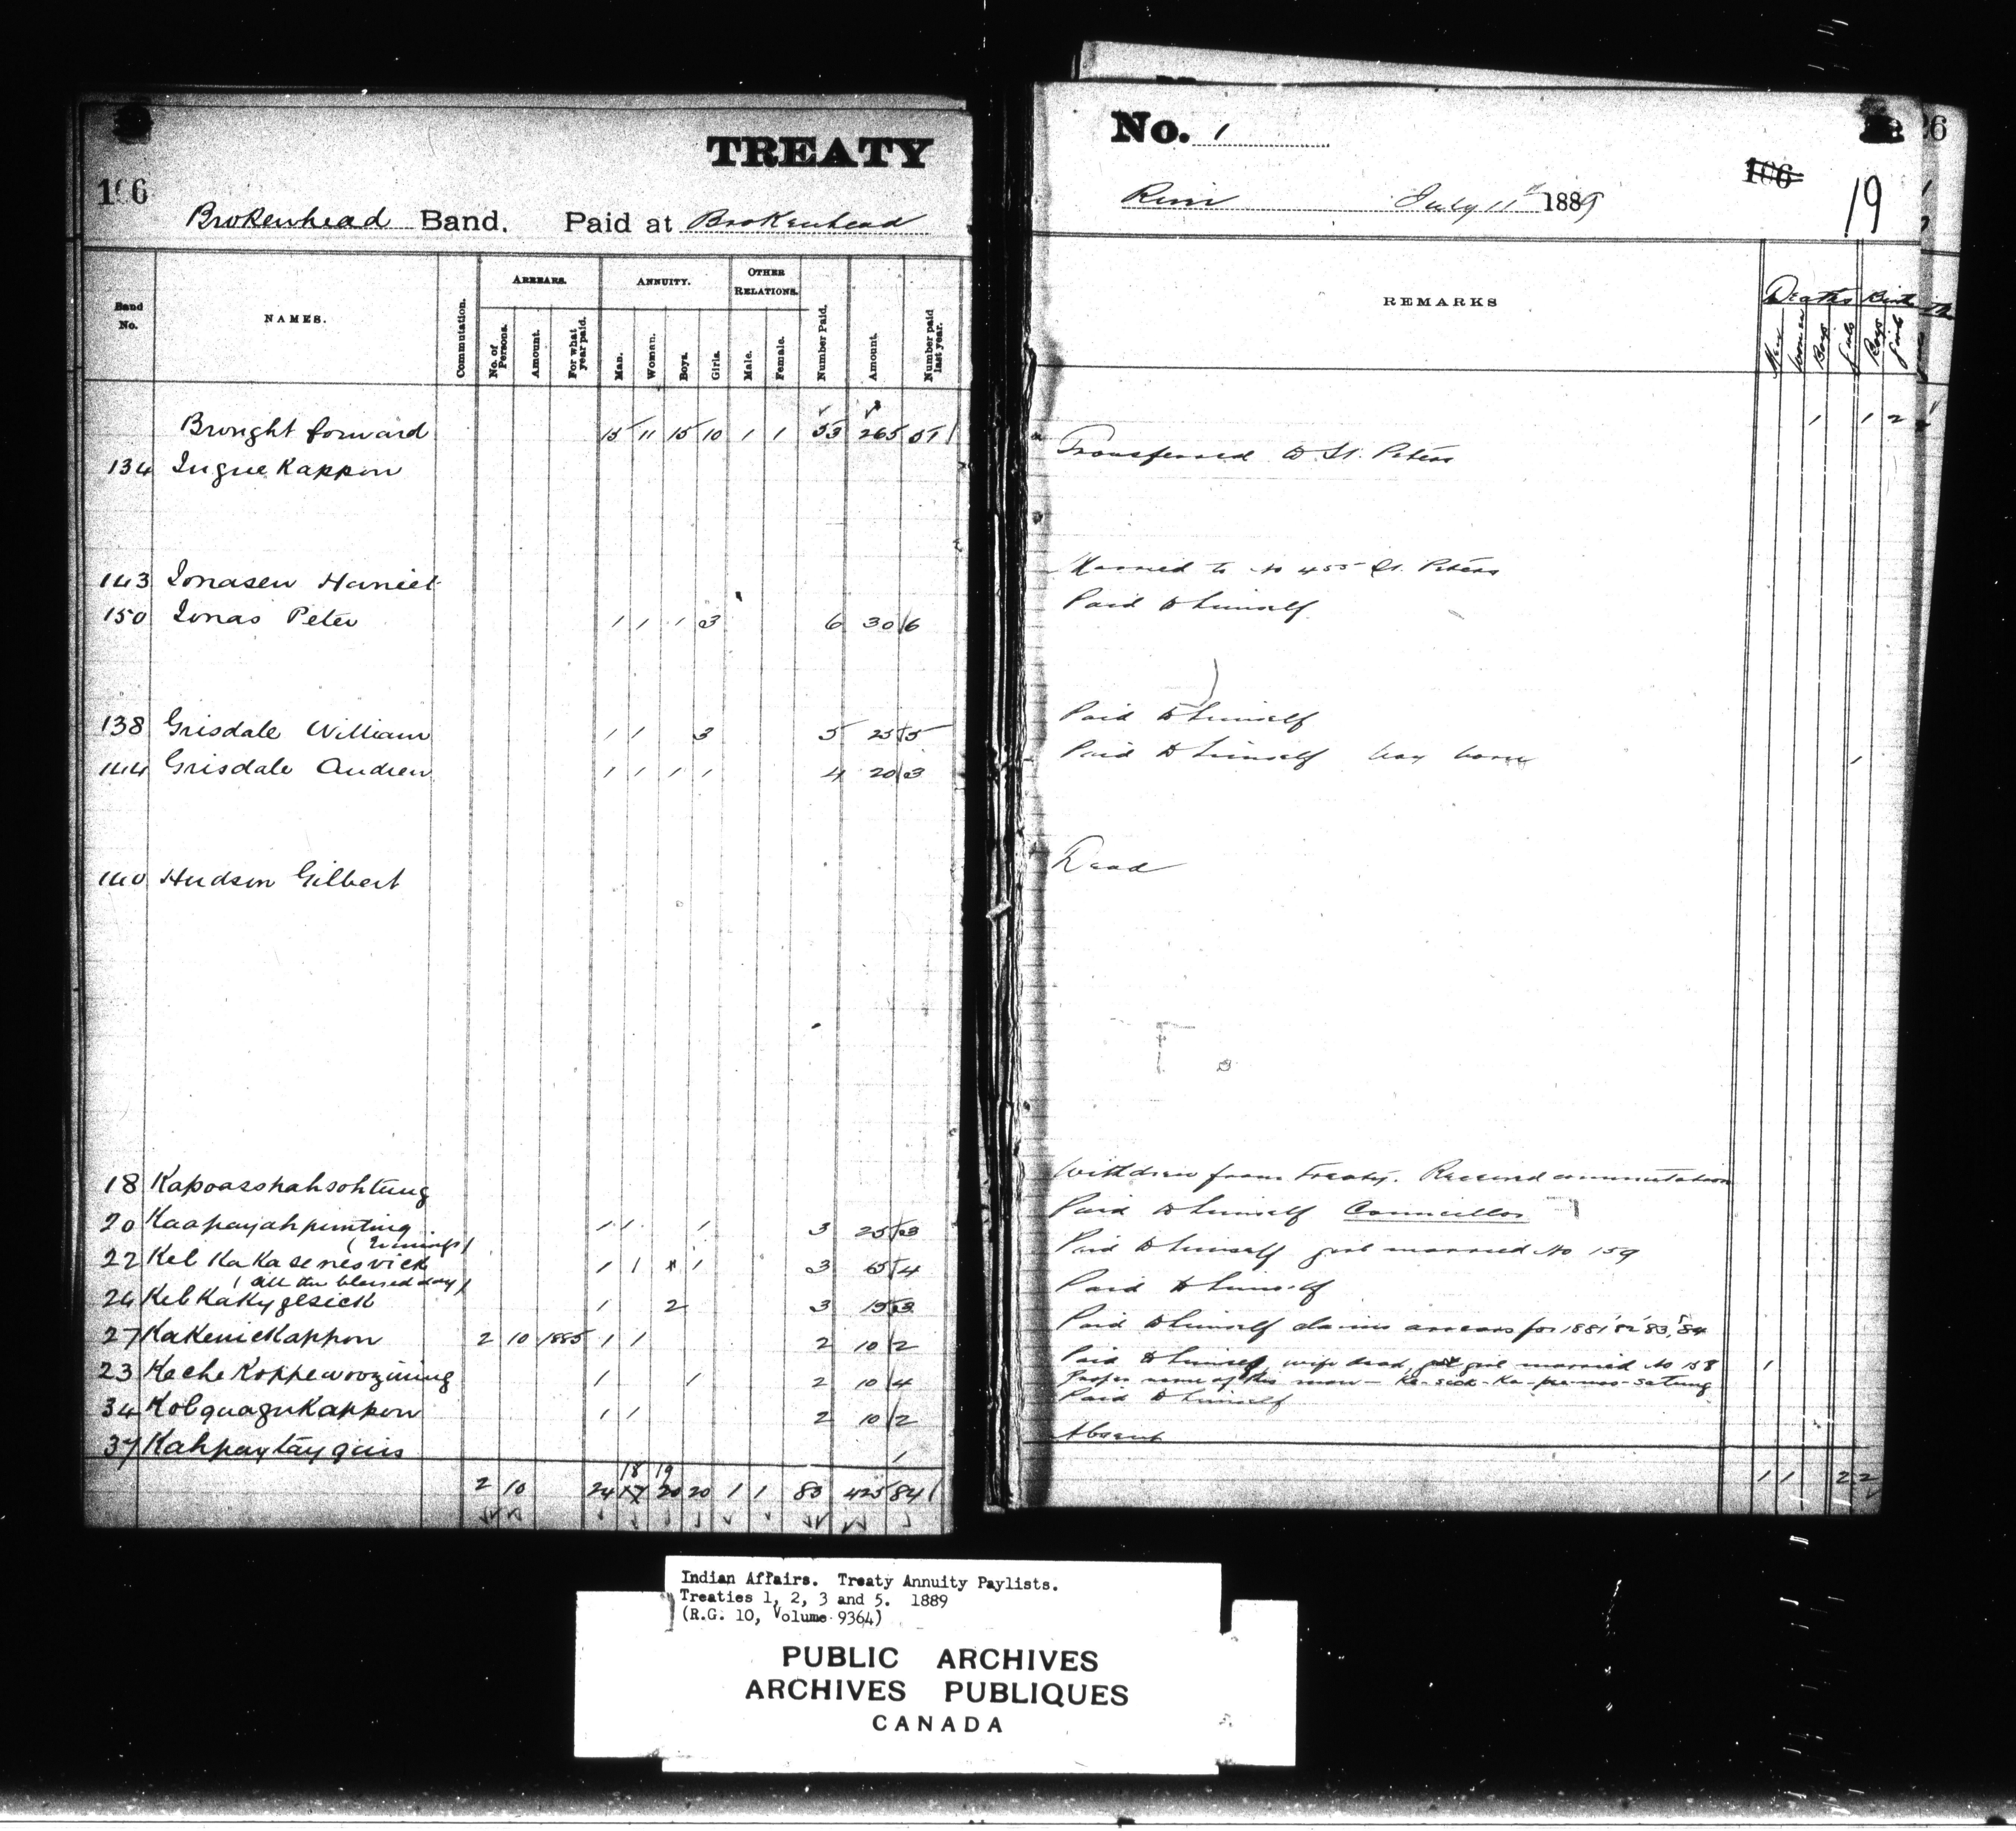 TREATY
No. 1
26
106
19
Brokenhead Band. Paid at Brokenhead
River July 11th 1889
Band No.
NAMES.
Commutation.
ARREARS.
No. of Persons.
Amount.
For what year paid.
ANNUITY.
Man.
Woman.
Boys.
Girls.
OTHER RELATIONS.
Male.
Female.
Number Paid.
Amount.
Number paid last year.
REMARKS
Deaths Births
Men
Women
Boys
Girls
Boys
Girls
Brought forward 15 11 15 10 1 1 53 265 51 1 1 2
134 Transferred to St. Peters
143 Married to No 455 St. Peters
150 Jonas Peter 1 1 1 3 6 30 6 Paid to himself
138 Grisdale William 1 1 3 5 25 5 Paid to himself
144 Grisdale Andrew 1 1 1 1 4 20 3 Paid to himself boy born 1
140 Hudson Gilbert Dead
18 Kapoasshahsohtung Withdrew from treaty. Received commutation
20 Kaapayahpunting 1 1 1 3 25 3 Paid to himself Councillor
22 1 1 1 3 65 4 Paid to himself girl married No 159
(all the blessed day)
24 KebKaKygesick 1 2 3 15 3 Paid to himself
27 KaKenicKappon 2 10 1885 1 1 2 10 2 Paid to himself claims arrears for 1881 '82 '83, '84
23 1 1 2 10 4 Paid to himself, wife dead, girl married No 158 1
Proper name of this man
34 KobquaguKappon 1 1 2 10 2 Paid to himself
37 Kahpaytayguis 1 Absent
18 19
2 10 24 17 20 20 1 1 83 425 84 1 1 1 2 2
Indian Affairs. Treaty Annuity Paylists.
Treaties 1, 2, 3 and 5. 1889
(R.G. 10, Volume 9364)
PUBLIC ARCHIVES
ARCHIVES PUBLIQUES
CANADA